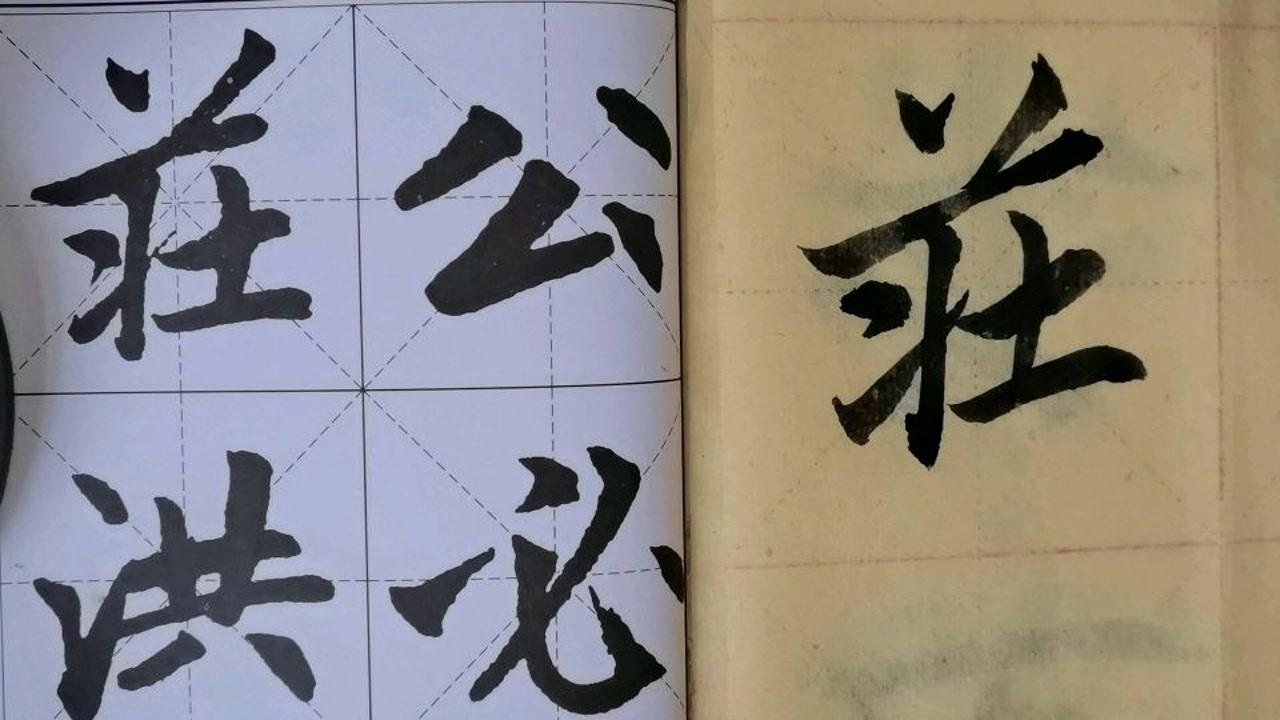 莊公
洪必
莊